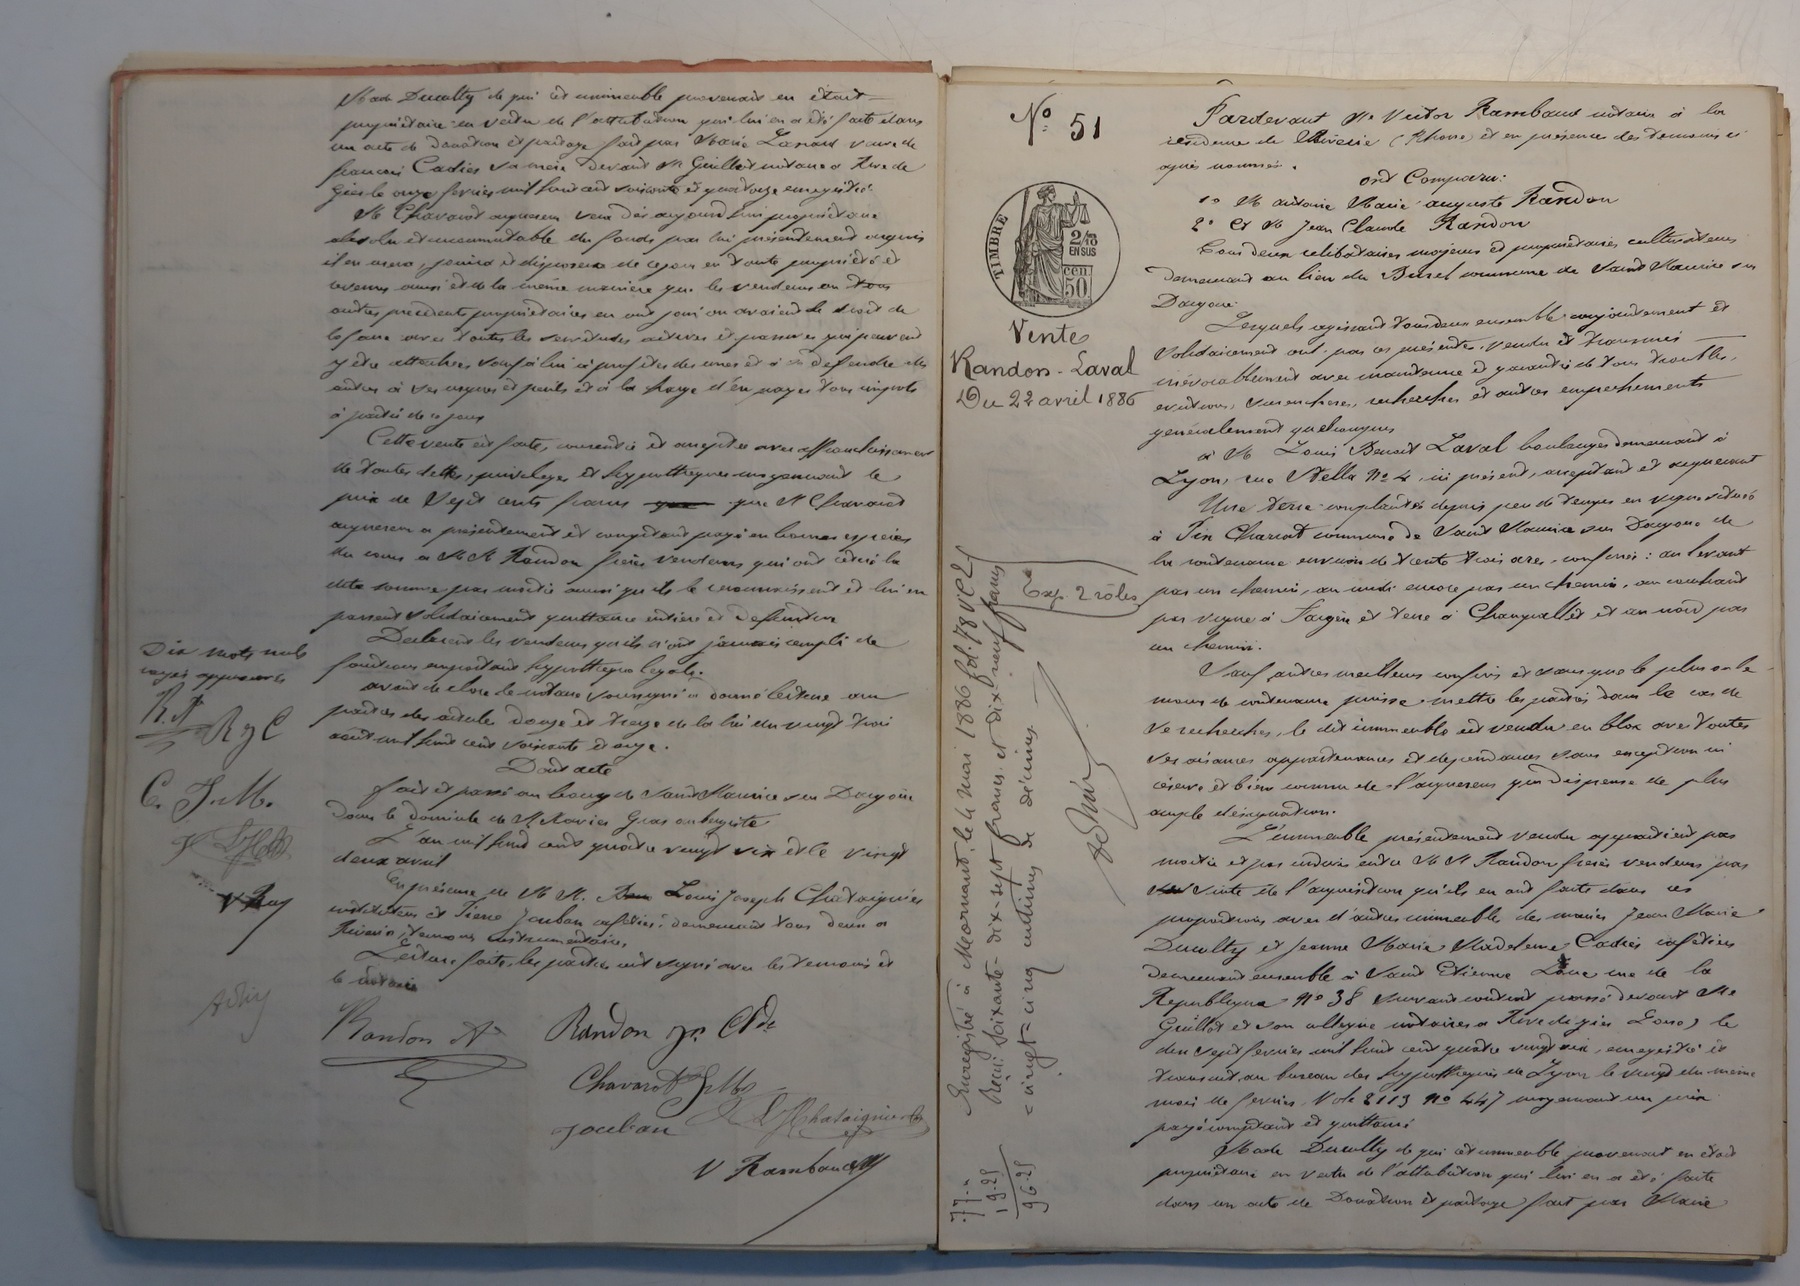 Made Ducultty de qui cet immeuble provenait en était
propriétaire en vertu de l'attribution qui lui en a été faite dans
un acte de donation et partage fait par Marie veuve de
francois Cadies sa mère devant Me Guillot notaire à Rive de
Gier le onze fevrier mil huit cent soixante et quatorze enregistré
M Chavarot acquereur sera dès aujourd'hui propriétaire
absolu et incommutable du fonds par lui présentement acquis
il en usera, jouira et disposera de ce jour en toute propriété et
revenus aussi et de la même manière que les vendeurs ou tous
autres précédents propriétaires en ont joui ou avaient le droit de
le faire avec toutes les servitudes actives et passives qui peuvent
y être attachées sauf à lui à profiter des unes et à se défendre des
autres à ses risques et perils et à la charge d'en payer tous impots
à partir de ce jour
Cette vente est faite, consentie et acceptée avec affranchissement
de toutes dettes, privileges et hypothèques moyennant le
prix de Sept cents francs que M Chavarot
acquereur a présentement et comptant payé en bonnes espèces
du cours à M M Randon frères vendeurs qui ont retiré la
dite somme par moitié ainsi qu'ils le reconnaissent et lui en
passent solidairement quittance entière et definitive
Declarent les vendeurs qu'ils n'ont jamais rempli de
fonctions emportant hypothèque legale.
avant de clore le notaire soussigné a donné lecture aux
parties des articles douze et treize de la loi du vingt trois
aout mil huit cent soixante et onze.
Dont acte
fait et passé au bourg de Saint Maurice sur Dargoire
dans le domicile de M Xavier Gras aubergiste
L'an mil huit cent quatre vingt six et le vingt
deux avril
En présence de M M. Louis Joseph Chataignier
instituteur et Pierre Jouban cafetier, demeurant tous deux à
Riverie, temoins instrumentaires
Lecture faite, les parties ont signé avec les temoins et
le notaire
Dix mots nuls
rayés approuvés
R A
R J C
C. J. M.
V Ray
Randon A
Randon Jn Cde
Chavarot J M
Jouban
L J Chataignier
V Rambaud
No 51
TIMBRE
2/10
EN SUS
50 cen
Vente
Randon - Laval
Du 22 avril 1886
Exp. 2 rôles
Enregistré à Mornant, le 4 mai 1886 fol. 78 V C 2
Reçu soixante-dix-sept francs et dix neuf francs
vingt-cinq centimes de décimes
77 "
19.25
96.25
Pardevant Me Victor Rambaud notaire à la
residence de Riverie (Rhone) et en présence des temoins ci
après nommés.
ont Comparu:
1o M antoine Marie auguste Randon
2o Et M Jean Claude Randon
Tous deux celibataires majeurs et propriétaires cultivateurs
demeurant au lieu du Buret commune de Saint Maurice sur
Dargoire
Lesquels agissant tous deux ensemble conjointement et
solidairement ont par ces présentes, vendu et transmis
irrévocablement avec maintenue et garantie de tous troubles,
evictions, surenchères, recherches et autres empechements
généralement quelconques
à M Louis Benoit Laval boulanger demeurant à
Lyon, rue Stella No 4, ici présent, acceptant et acquerant
Une terre complantée depuis peu de temps en vigne située
à Chariot commune de Saint Maurice sur Dargoire de
la contenance environ de trente trois ares, confinée: au levant
par un chemin, au midi encore par un chemin, au couchant
par vigne à Fargère et terre à Chanvallet et au nord par
un chemin.
Sauf autres meilleurs confins et sans que le plus ou le
moins de contenance puisse mettre les parties dans le cas de
se rechercher, le dit immeuble est vendu en bloc avec toutes
ses aisances appartenances et dependances sans exception ni
réserve et bien connu de l'acquereur qui dispense de plus
ample désignation.
L'immeuble présentement vendu appartient par
moitié et par indivis entre M M Randon frères vendeurs par
suite de l'acquisition qu'ils en ont faite dans ces
proportions avec d'autres immeuble des mariés Jean Marie
Ducultty et Jeanne Marie Madeleine Cadies cafetiers
demeurant ensemble à Saint Etienne Loire rue de la
Republique No 38 suivant contrat passé devant Me
Guillot et son collègue notaires à Rive de gier Loire, le
dix sept fevrier mil huit cent quatre vingt six, enregistré et
transcrit au bureau des hypothèques de Lyon le vingt du même
mois de fevrier, Vol 2113 No 447 moyennant un prix
payé comptant et quittancé
Made Ducultty de qui cet immeuble provenait en était
propriétaire en vertu de l'attribution qui lui en a été faite
dans un acte de Donation et partage fait par Marie